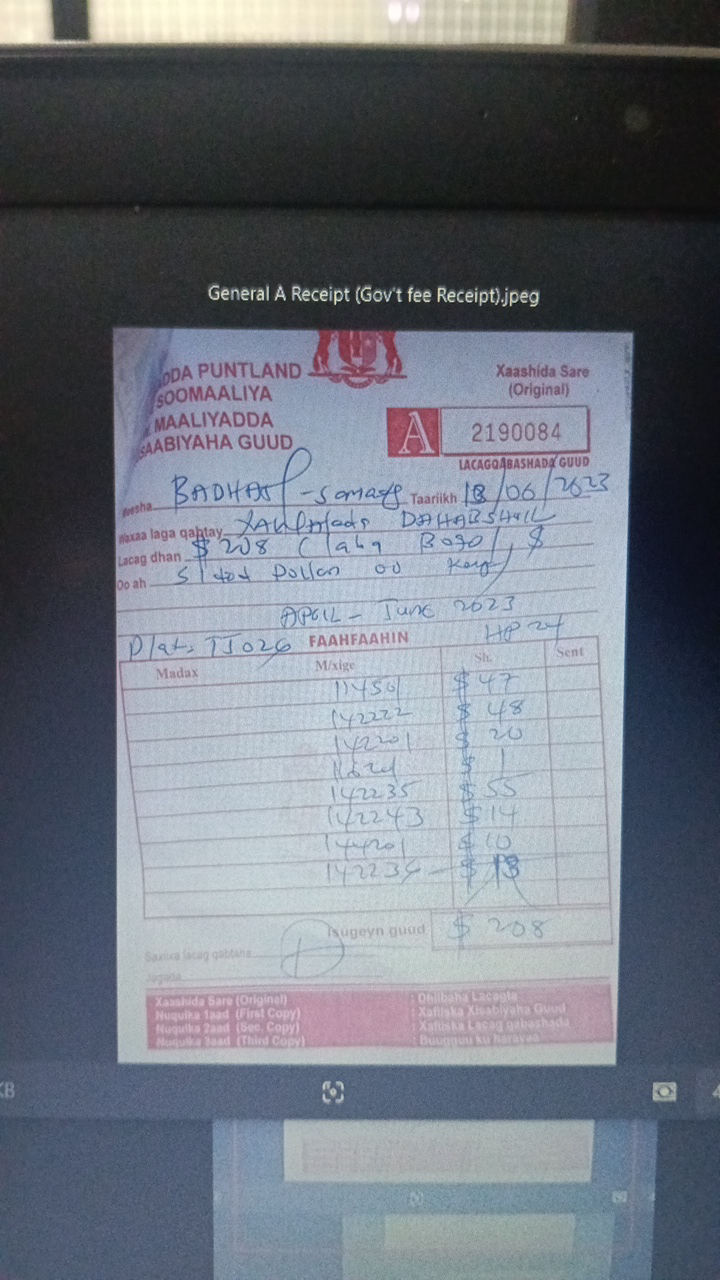 General A Receipt (Gov't fee Receipt).jpeg
DDA PUNTLAND
SOOMAALIYA
MAALIYADDA
SAABIYAHA GUUD
Xaashida Sare
(Original)
A 2190084
LACAGQABASHADA GUUD
BADHAN Taariikh 18/06/2023
Waxaa laga qabtay DAHABSHIIL
Lacag dhan $ 208 (Laba Boqol, $
Oo ah Dollar oo
APRIL - June 2023
Plat. TJ026 FAAHFAAHIN
Madax M/xige Sh. Sent
11450 $ 47
142222 $ 48
142201 $ 20
$ 1
142235 $ 55
142243 $ 14
144201 $ 10
142234 - $ 13
Isugeyn guud $ 208
Saxiixa lacag qabtaha
Jagada
Xaashida Sare (Original) : Dhiibaha Lacagta
Nuqulka 1aad (First Copy) : Xafiiska Xisabiyaha Guud
Nuqulka 2aad (Sec. Copy) : Xafiiska Lacag qabashada
Nuqulka 3aad (Third Copy) : Buugguu ku harayaa
KB